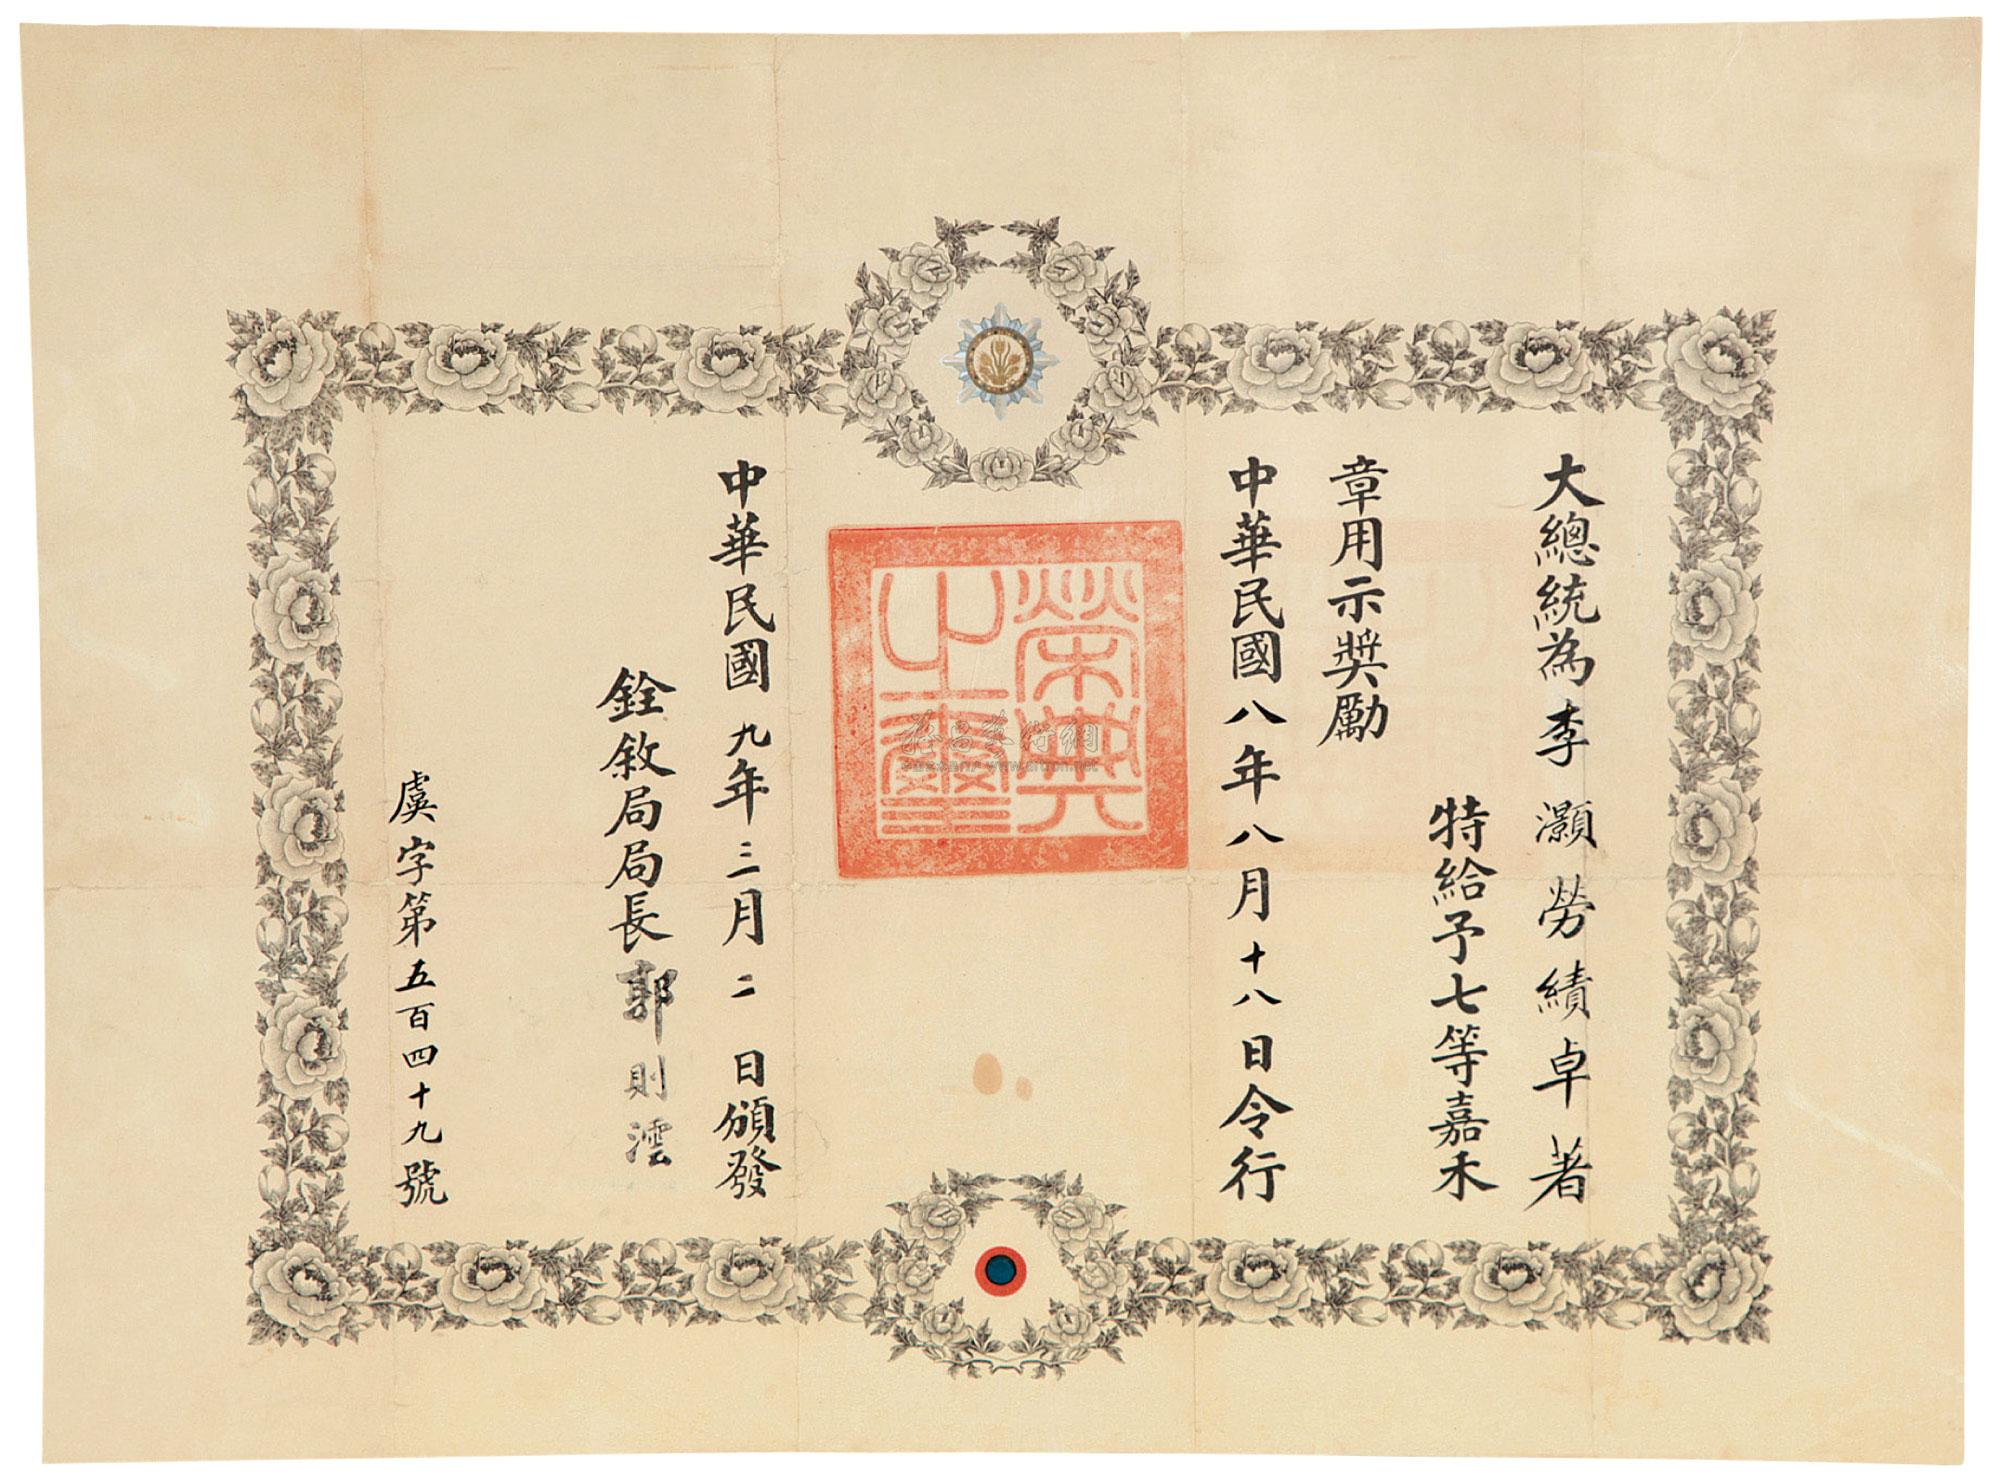 大總統為李灝勞績卓著
特給予七等嘉禾
章用示獎勵
中華民國八年八月十八日令行
榮典之璽
中華民國九年三月二日頒發
銓敘局局長郭則澐
虞字第五百四十九號